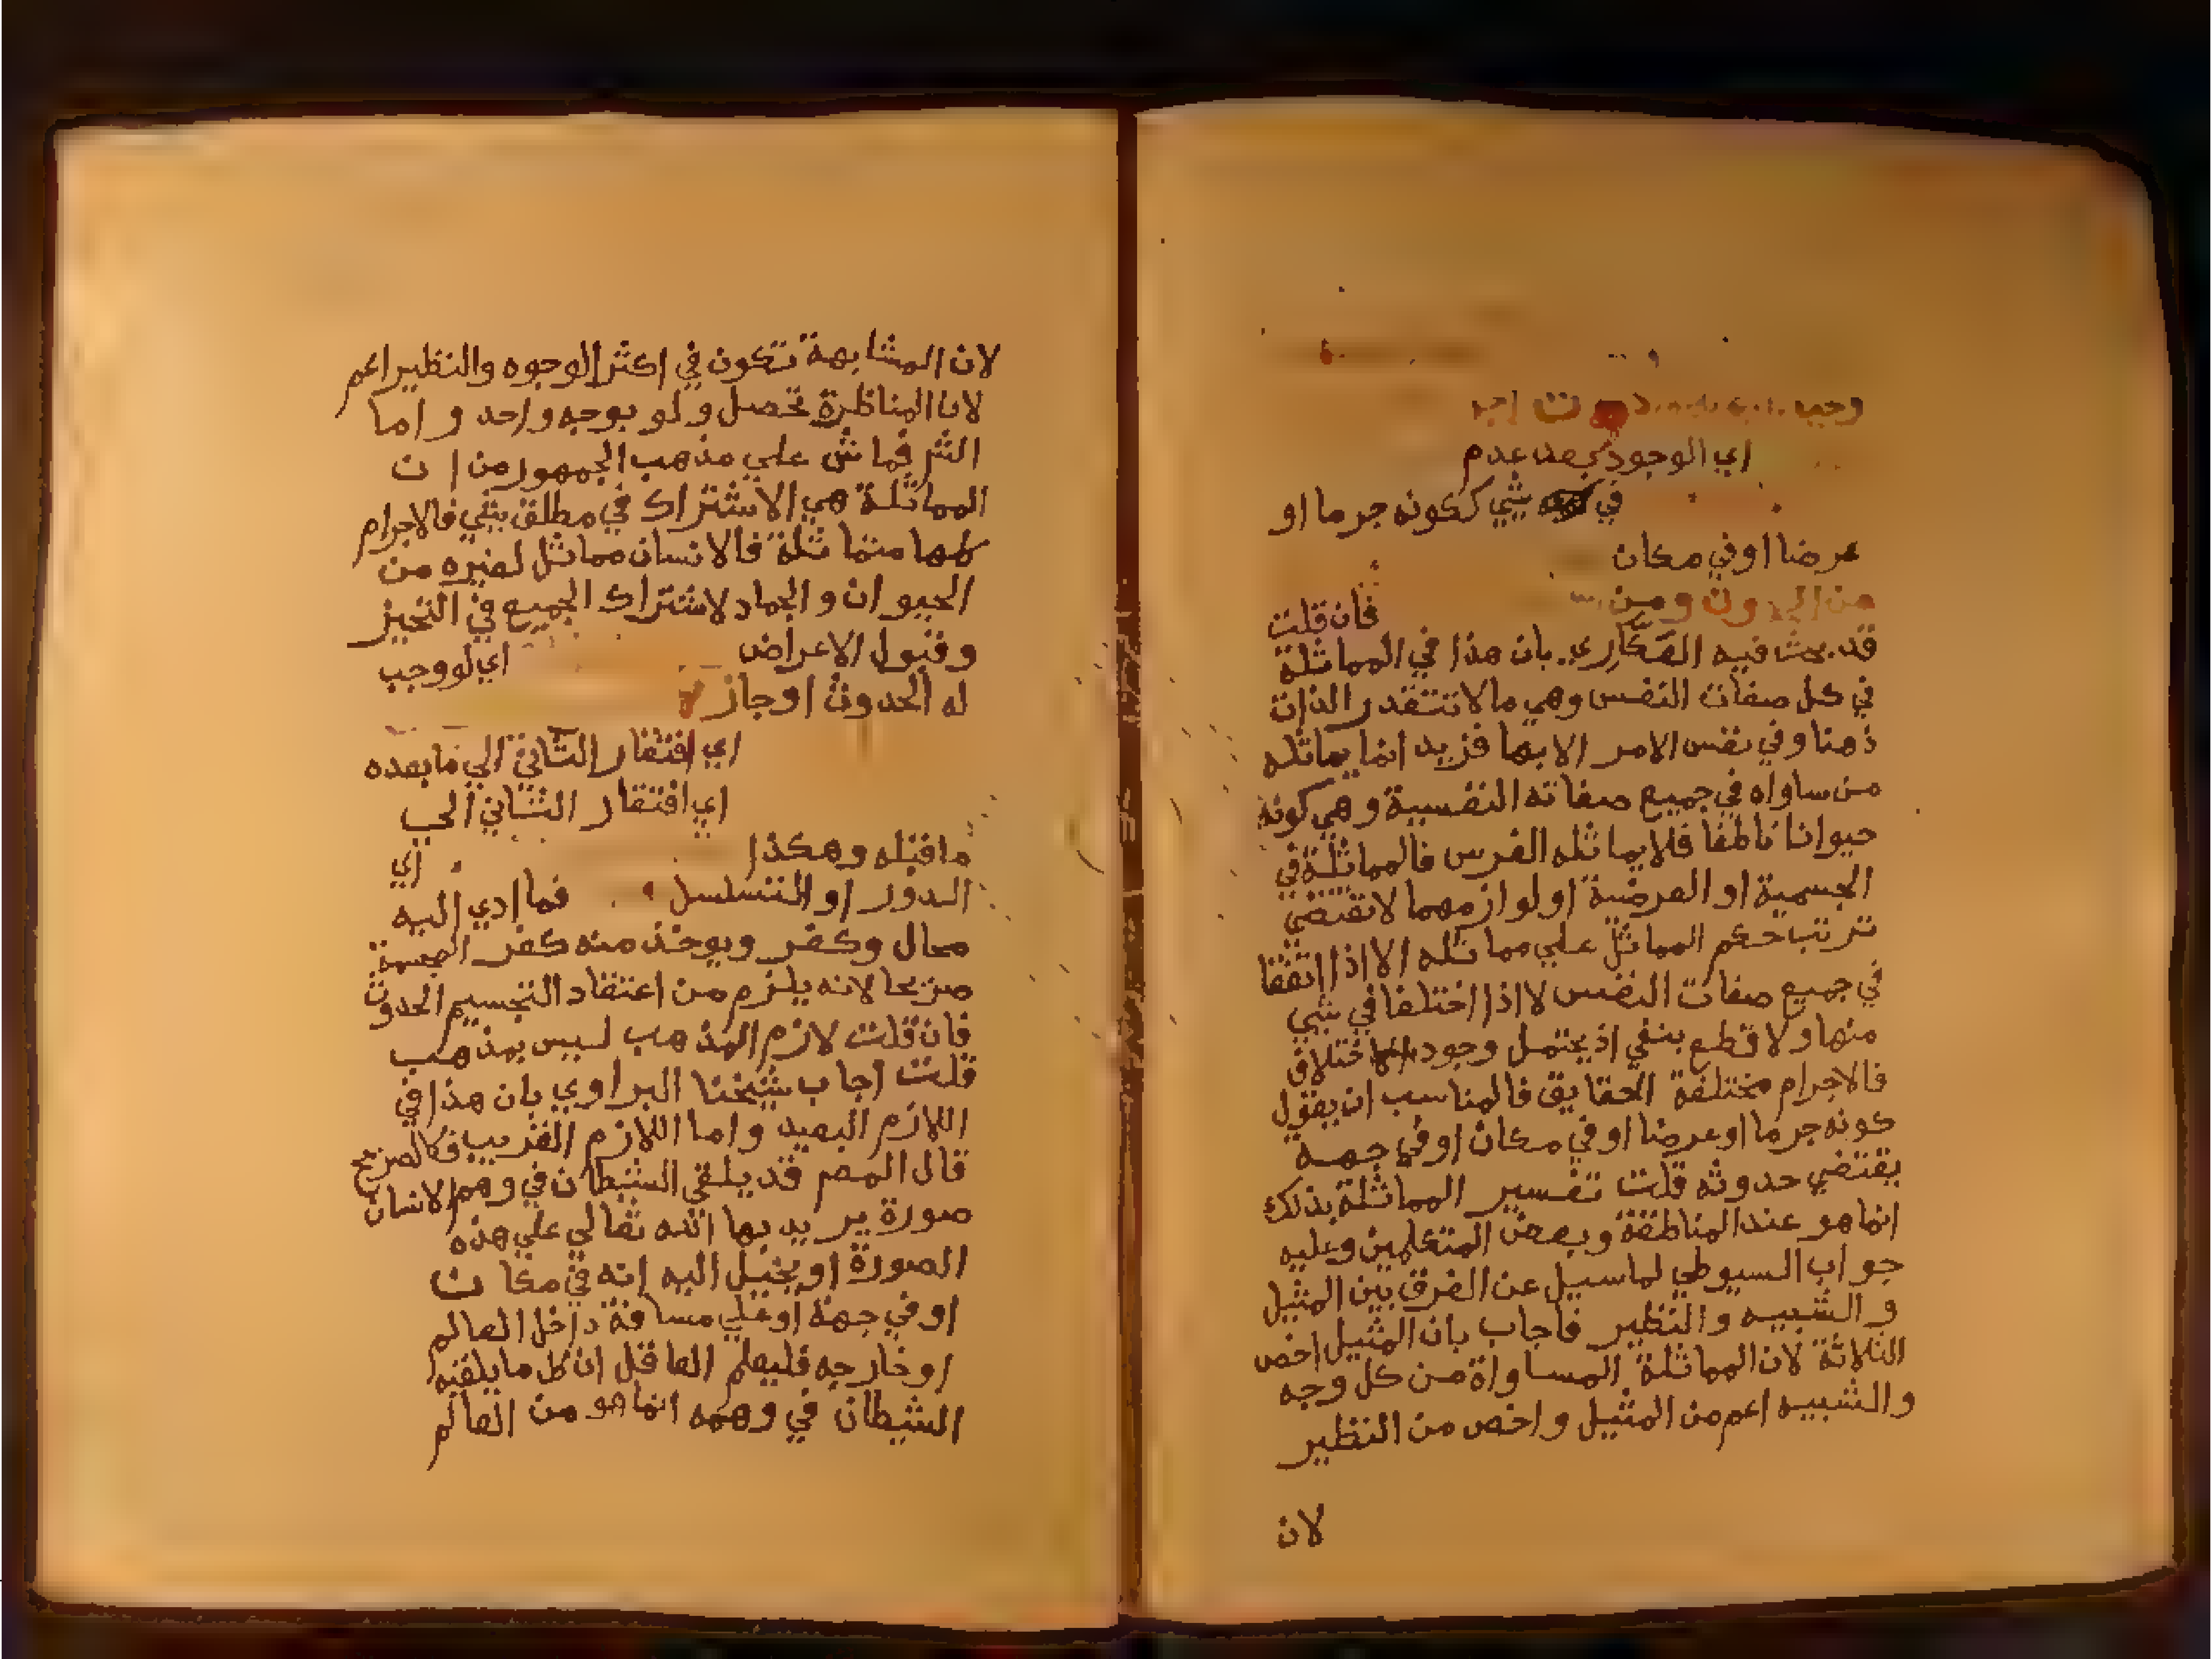 اي الوجود بعد عدم
في شي ككونه جرما او
عرضا او في مكان
ومن
فان قلت
قد بحث فيه العكاري بان هذا في المماثلة
في كل صفات النفس وهي ما لا تتقدر الذات
ذهنا وفي نفس الامر الا بها فزيد انما يماثله
من ساواه في جميع صفاته النفسية وهي كونه
حيوانا ناطقا فلا يماثله الفرس فالمماثلة في
الجسمية او العرضية او لوازمهما لا تقتضي
ترتب حكم المماثل علي مماثله الا اذا اتفقا
في جميع صفات النفس لا اذا اختلفا في شي
منها ولا قطع بنفي اذ يحتمل وجود اختلاف
فالاجرام مختلفة الحقايق فالمناسب ان يقول
كونه جرما او عرضا او في مكان او في جهة
يقتضي حدوثه قلت تفسير المماثلة بذلك
انما هو عند المناطقة وبعض المتكلمين وعليه
جواب السيوطي لما سيل عن الفرق بين المثيل
والشبيه والنظير فاجاب بان المثيل اخص
الثلاثة لان المماثلة المساواة من كل وجه
والشبيه اعم من المثيل واخص من النظير
لان
لان المشابهة تكون في اكثر الوجوه والنظير اعم
لان المناظرة تحصل ولو بوجه واحد واما
الشر فماش علي مذهب الجمهور من ا ن
المماثلة هي الاشتراك في مطلق شي فالاجرام
كلها متماثلة فالانسان مماثل لغيره من
الحيوان والجماد لاشتراك الجميع في التحيز
وقبول الاعراض اي لو وجب
له الحدوث او جاز
اي افتقار الثاني الي ما بعده
اي افتقار الثاني الي
ما قبله وهكذا
اي
الدور او التسلسل فما ادي اليه
محال وكفر ويوخذ منه كفر المجسمة
صريحا لانه يلزم من اعتقاد التجسيم الحدوث
فان قلت لازم المذهب ليس بمذهب
قلت اجاب شيخنا البراوي بان هذا في
اللازم البعيد واما اللازم القريب فكالصريح
قال المصر قد يلقي الشيطان في وهم الانسان
صورة يريد بها الله تعالي علي هذه
الصورة او يخيل اليه انه في مكا ن
او في جهة او علي مسافة داخل العالم
او خارجه فليعلم العاقل ان كل ما يلقيه
الشيطان في وهمه انما هو من العالم